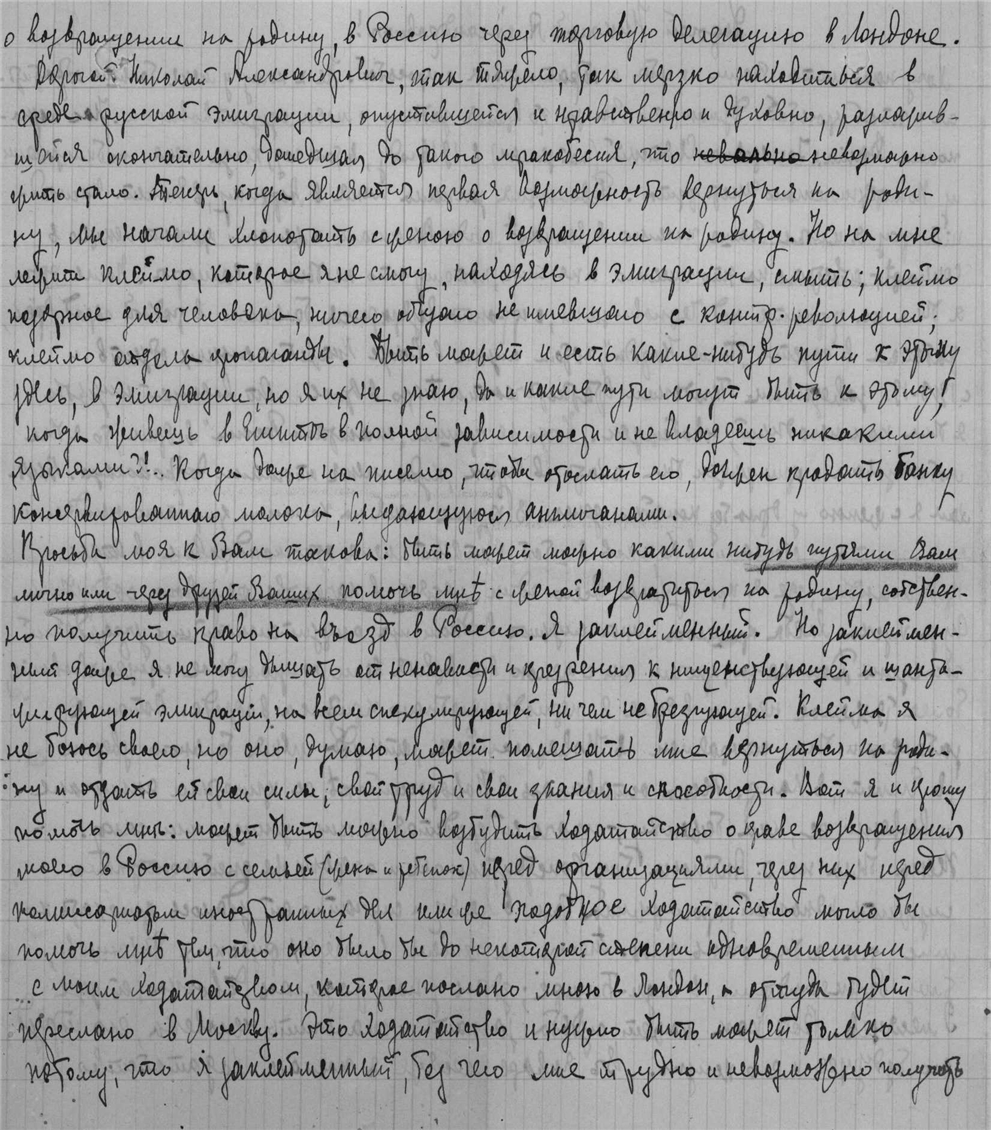 о возвращении на родину, в Россию через торговую делегацию в Лондоне.
Дорогой Николай Александрович, так тяжело, так мерзко находиться в
среде русской эмиграции, опустившейся и нравственно и духовно, разложив-
шейся окончательно, дошедшая до такого мракобесия, что невольно невозможно
жить стало. Теперь, когда является первая возможность вернуться на роди-
ну, мы начали хлопотать с женою о возвращении на родину. Но на мне
лежит клеймо, которое я не смогу, находясь в эмиграции, смыть; клеймо
позорное для человека, ничего общаго не имевшаго с контр-революцией;
клеймо отдела пропаганды. Быть может и есть какие-нибудь пути к этому
здесь, в эмиграции, но я их не знаю, да и какие пути могут быть к этому,
когда живешь в Египте в полной зависимости и не владеешь никакими
языками?!.. Когда даже на письмо, чтобы отослать его, должен продать банку
консервированнаго молока, выдающуюся англичанами.
Просьба моя к Вам такова: быть может можно какими нибудь путями Вам
лично или через друзей Ваших помочь мнѣ с женой возвратиться на родину, собствен-
но получить право на въезд в Россию. Я заклейменный. Но заклеймен-
ный даже я не могу дышать от ненависти и презрения к нищенствующей и шанта-
жирующей эмиграции, на всем спекулирующей, ни чем не брезгующей. Клейма я
не боюсь своего, но оно, думаю, может помешать мне вернуться на роди-
ну и отдать ей свои силы, свой труд и свои знания и способности. Вот я и прошу
помочь мнѣ: может быть можно возбудить ходатайство о праве возвращения
моего в Россию с семьей (жена и ребенок) перед организациями, через них перед
комиссариатом иностранных дел или же подобное ходатайство могло бы
помочь мнѣ тем, что оно было бы до некоторой степени одновременным
с моим ходатайством, которое послано мною в Лондон, а оттуда будет
переслано в Москву. Это ходатайство и нужно быть может только
потому, что я заклейменный, без чего мне трудно и невозможно получить